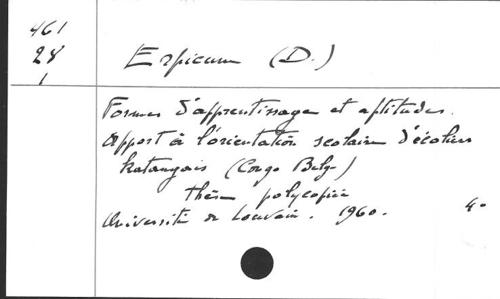 461
28
1
Erpicum (D.)
Formes d'apprentissage et aptitudes.
Apport à l'orientation scolaire d'écoliers
katangais (Congo Belge)
thèse polycopiée
Université de Louvain. 1960. 4°